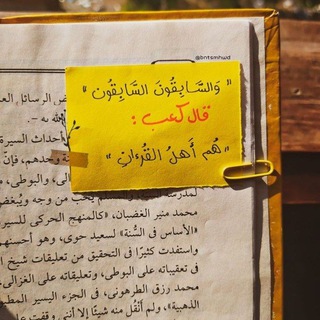 @bntsmhwd
"وَالسَّابِقُونَ السَّابِقُون"
قال كعب :
"هُم أَهلُ القُرءانِ"
ض الرسائل العد
الله به -.
أحداث السيرة
وحدهم، فإنّ
لي، والبوطي،
لمدرسة يحب من وجه ويبغض
محمد منير الغضبان، «كالمنهج الحركي للسير
«الأساس في السُّنة» لسعيد حوى، وهو أحسنهم
واستفدت كثيرًا في التحقيق من تعليقات شيخ ا
في تعقيباته على البوطي، وتعليقاته على الغزالي،
محمد رزق الطرهوني، في الجزء اليسير المط
الذهبية»، ولم أَنْقُل منه شيئًا إلا أنني وقفت عل